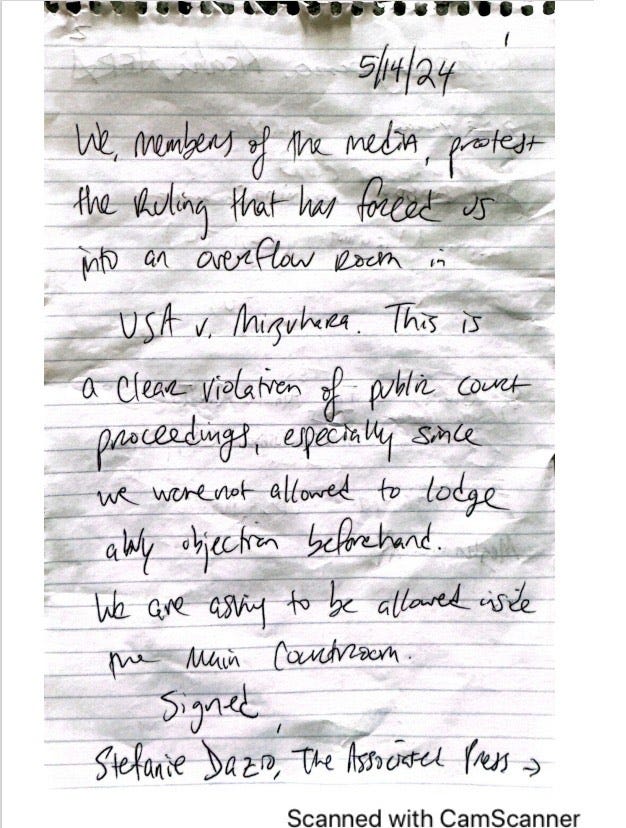 5/14/24
We, members of the media, protest
the Ruling that has forced us
into an overflow room in
USA v. Mizuhara. This is
a clear violation of public court
proceedings, especially since
we were not allowed to lodge
any objection beforehand.
We are asking to be allowed inside
the main Courtroom.
Signed,
Stefanie Dazio, The Associated Press →
Scanned with CamScanner